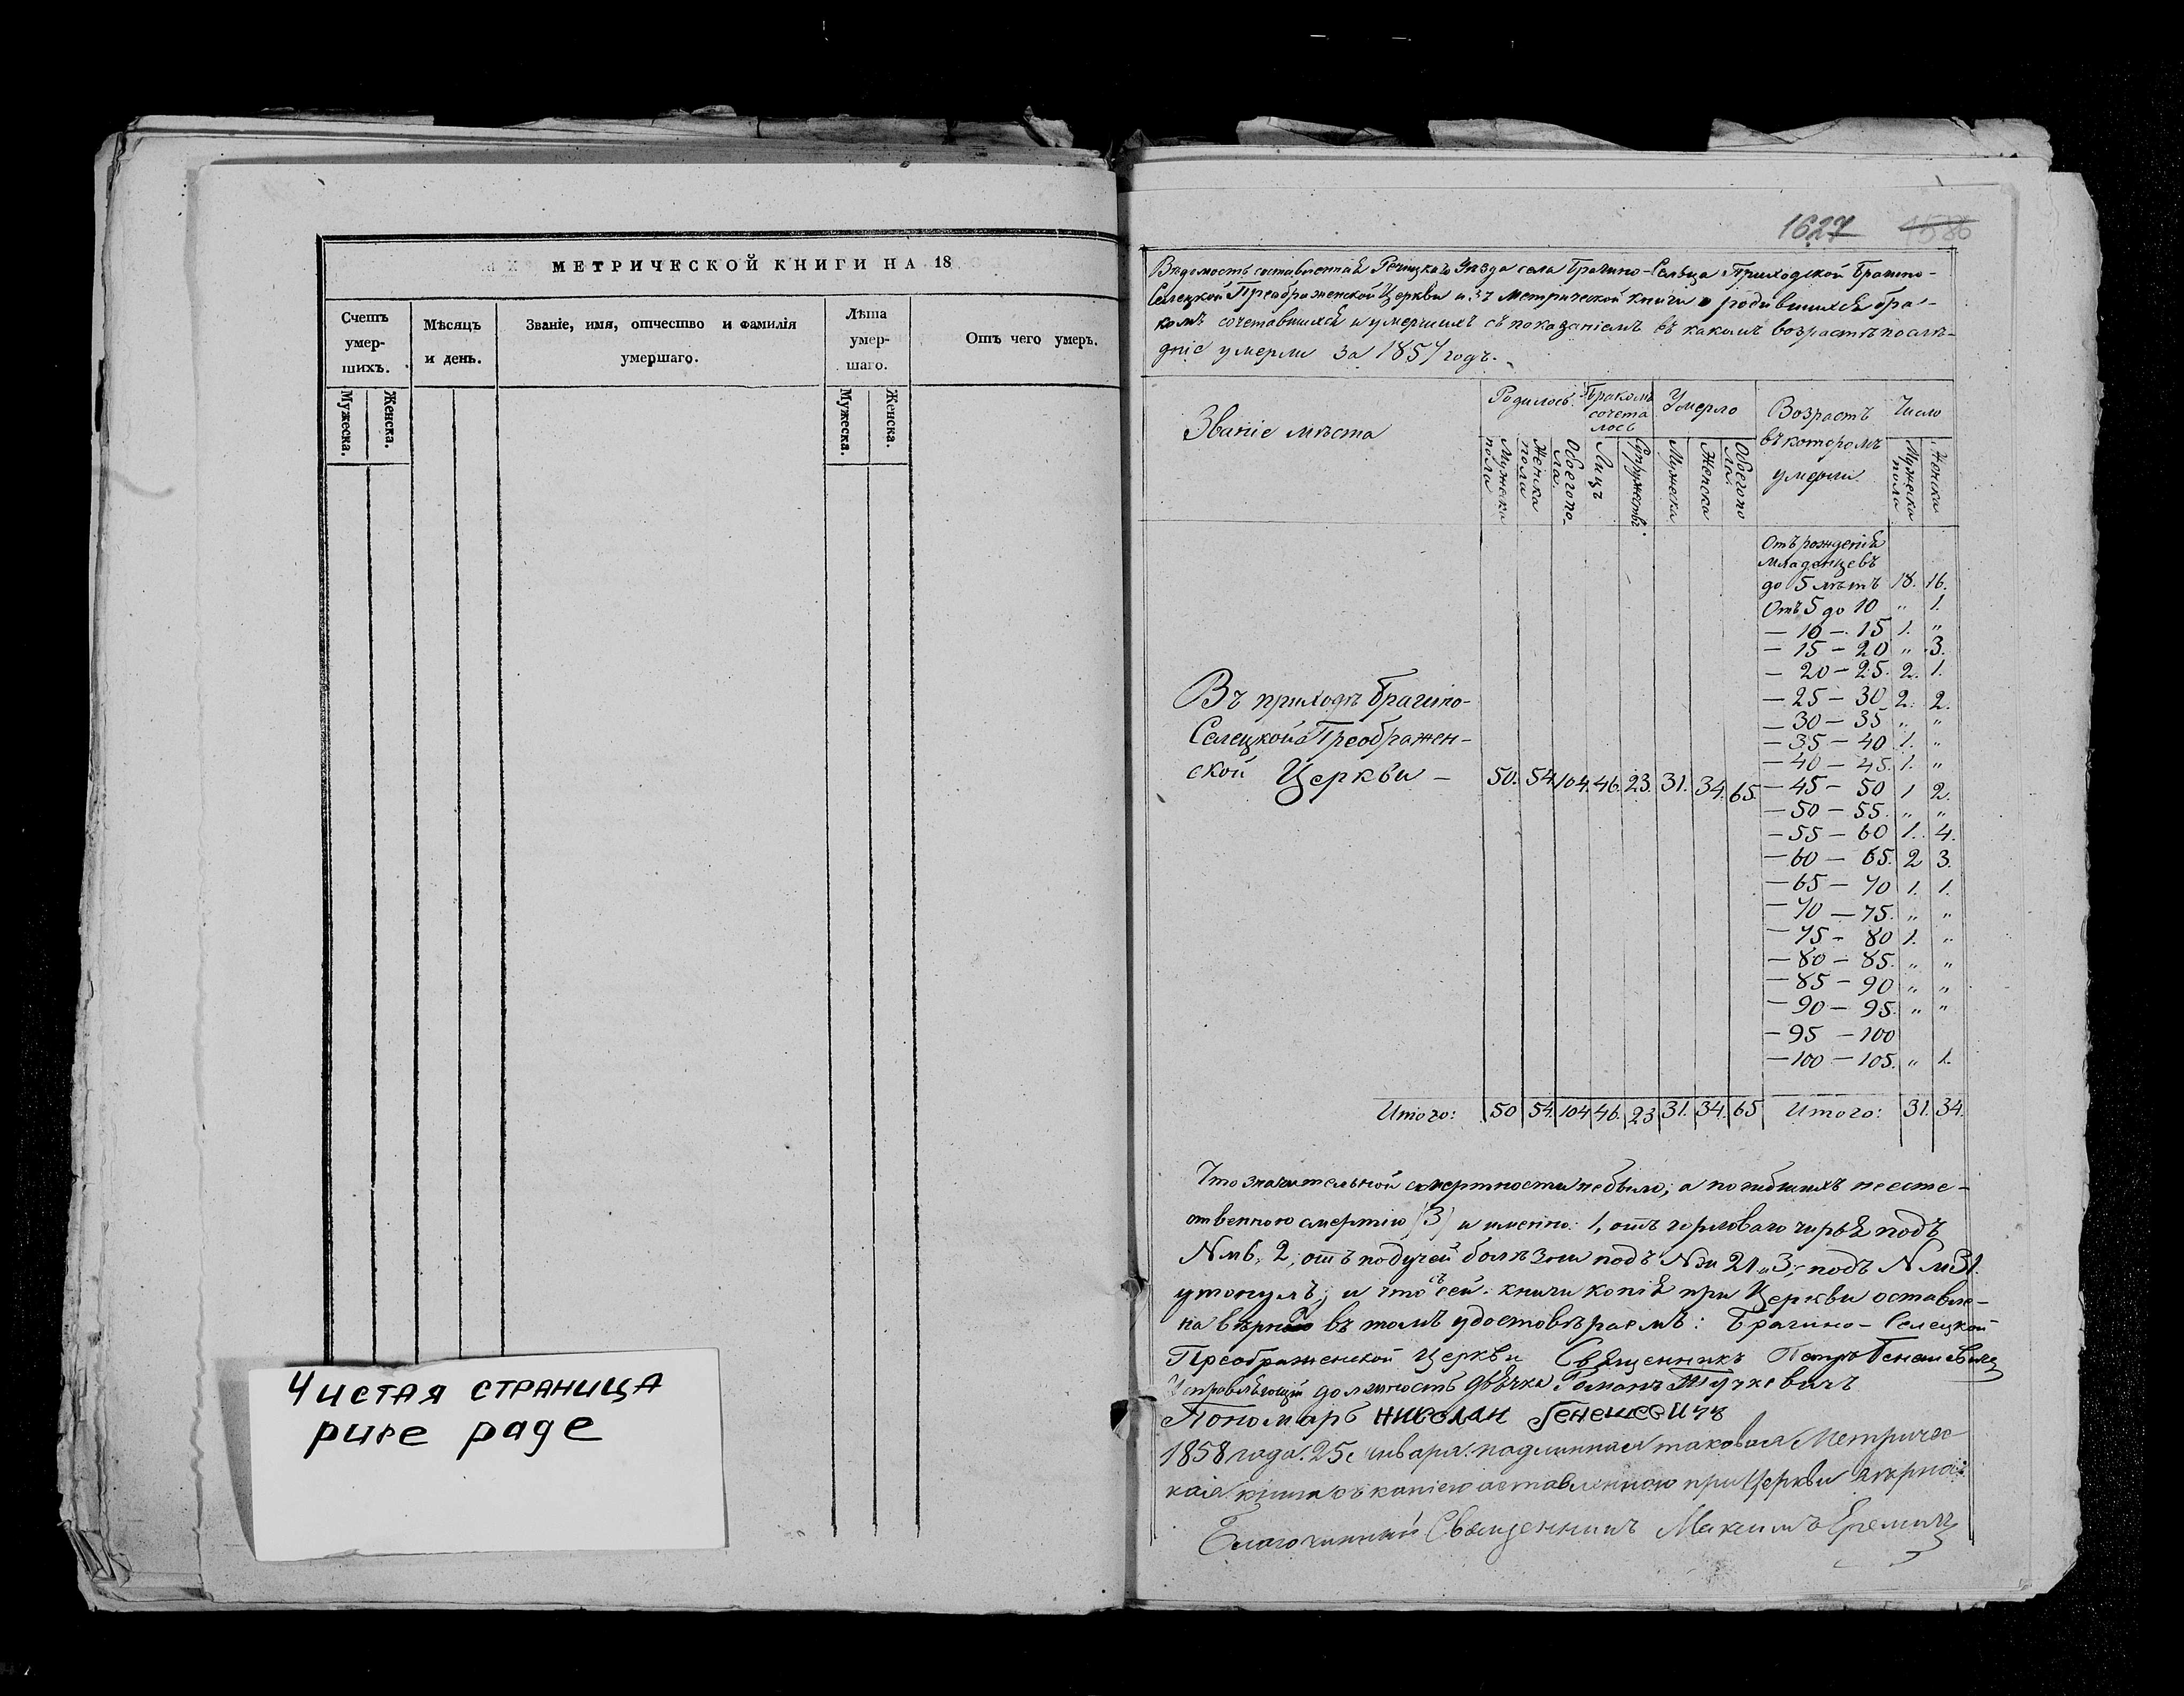 МЕТРИЧЕСКОЙ КНИГИ НА 18
Счетъ умер-шихъ.
Мѣсяцъ и день.
Званіе, имя, отчество и фамилія умершаго.
Лѣта умер-шаго.
Отъ чего умеръ.
Мужеска.
Женска.
Мужеска.
Женска.
Чистая страница
pure page
1627 1586
Вѣдомость составленная Речицкаго Уѣзда села Брагино-Сельца Приходской Брагино-
Селецкой Преображенской Церкви изъ Метрической книги о родившихся бра-
комъ сочетавшихся и умершихъ съ показаніемъ въ какомъ возрастѣ послѣ-
дніе умерли за 1857 годъ.
Званіе мѣста
Родилось.
Бракомъ сочета лось
Умерло
Возрастъ въ которомъ умерли
Число
Мужеска пола
Женска пола
Обоего по-ла.
Лицъ
Супружествъ.
Мужеска
Женска
Обоего по ла.
Мужеска пола
Женска
Отъ рожденія
младенцевъ
до 5 лѣтъ 18. 16.
Отъ 5 до 10 " 1.
— 10 — 15 1. "
— 15 — 20 " 3.
— 20 — 25. 2. 1.
— 25 — 30 2. 2.
— 30 — 35 " "
— 35 — 40 1. "
— 40 — 45. 1. "
Въ приходѣ Брагино-
Селецкой Преображен-
ской Церкви — 50. 54. 104. 46. 23. 31. 34. 65.
— 45 — 50 1 2.
— 50 — 55. " "
— 55 — 60 1. 4.
— 60 — 65. 2 3.
— 65 — 70 1. 1.
— 70 — 75. " "
— 75 — 80 1. "
— 80 — 85. " "
— 85 — 90 " "
— 90 — 95. " "
— 95 — 100
— 100 — 105. " 1.
Итого: 50 54. 104 46. 23 31. 34. 65 Итого: 31. 34.
Что значительной смертности небыло, а погибшихъ неесте-
ственною смертію (3) и именно: 1, отъ горловаго чирья подъ
N м 6, 2, отъ подучей болѣзни подъ N м 21 и 3, подъ N м 31.
утонулъ; и что съ сей книги копія при Церкви оставле-
на вѣрна въ томъ удостовѣряемъ: Брагино-Селецкой
Преображенской Церкви Священникъ Петръ
должность дьячка Романъ Тучкевичъ
Пономарь Николай
1858 года. 25 января. подлинная таковая Метричес
кая книга съ копіею оставленною при Церкви вѣрна:
Благочинный Священникъ Максимъ Еремичъ